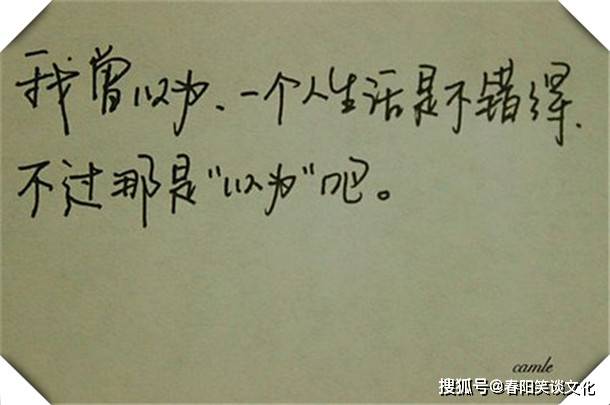 我曾以为、一个人生活是不错得、
不过那是“以为”吧。
camle
搜狐号@春阳笑谈文化